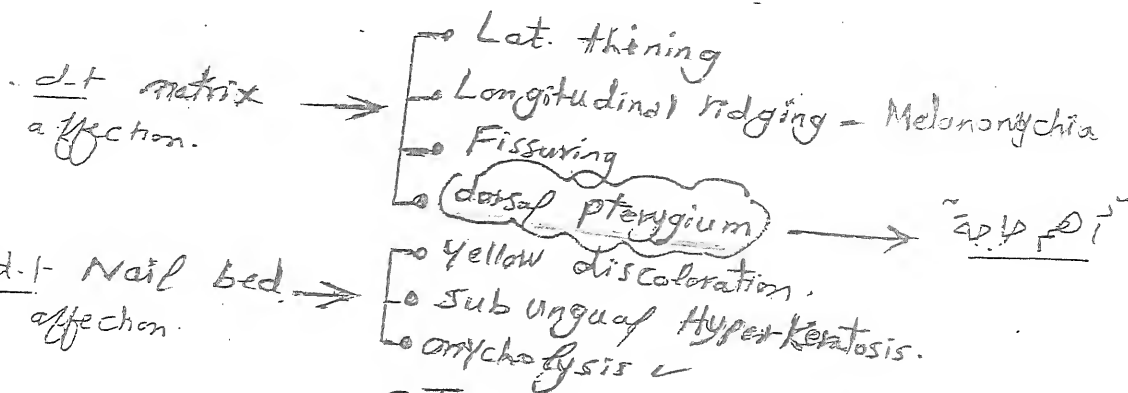 d.t matrix affection.
Lat. thining
Longitudinal ridging - Melanonychia
Fissuring
dorsal pterygium → "أهم حاجة"
d.t Nail bed affection.
yellow discoloration.
Sub ungual Hyperkeratosis.
onycholysis ✓